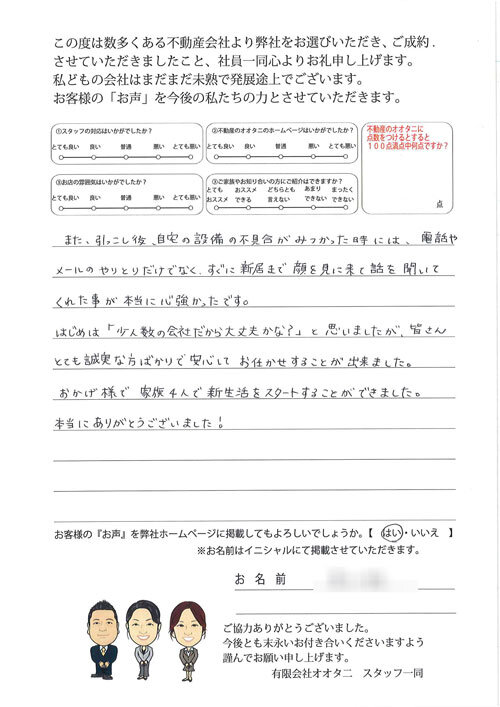 この度は数多くある不動産会社より弊社をお選びいただき、ご成約.
させていただきましたこと、社員一同心よりお礼申し上げます。
私どもの会社はまだまだ未熟で発展途上でございます。
お客様の「お声」を今後の私たちの力とさせていただきます。
①スタッフの対応はいかがでしたか?
とても良い 良い 普通 悪い とても悪い
②不動産のオオタニのホームページはいかがでしたか?
とても良い 良い 普通 悪い とても悪い
③お店の雰囲気はいかがでしたか?
とても良い 良い 普通 悪い とても悪い
③ご家族やお知り合いの方にご紹介はできますか?
とても オススメ どちらとも あまり まったく
オススメ できる 言えない できない できない
不動産のオオタニに
点数をつけるとすると
100点満点中何点ですか?
点
また、引っこし後、自宅の設備の不具合がみつかった時には、電話や
メールのやりとりだけでなく、すぐに新居まで顔を見に来て話を聞いて
くれた事が本当に心強かったです。
はじめは「少人数の会社だから大丈夫かな?」と思いましたが、皆さん
とても誠実な方ばかりで安心してお任せすることが出来ました。
おかげ様で家族4人で新生活をスタートすることができました。
本当にありがとうございました!
お客様の『お声』を弊社ホームページに掲載してもよろしいでしょうか。【 はい・いいえ 】
※お名前はイニシャルにて掲載させていただきます。
お名前
ご協力ありがとうございました。
今後とも末永いお付き合いくださいますよう
謹んでお願い申し上げます。
有限会社オオタニ スタッフ一同